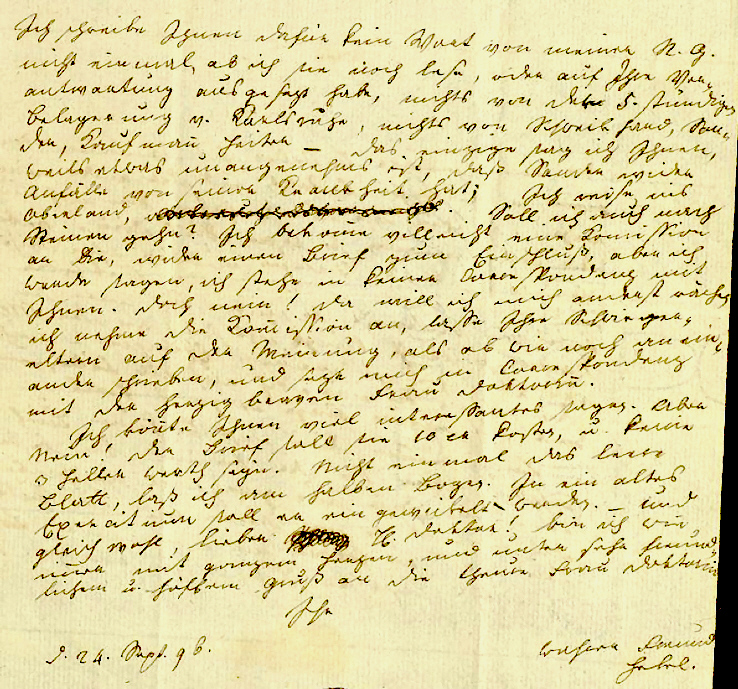 Ich schreibe Ihnen dafür kein Wort von meiner N. G.
nicht einmal, ob ich sie noch lese, oder auf Ihre Ver-
antwortung ausgesezt habe, nichts von der 5. stündigen
Belagerung v. Karlsruhe, nichts von
der, Kaufmañ heiten — das einzige sag ich Ihnen,
weils etwas unangenehmes ist, daß Sander wider
Anfälle von seiner Krankheit hat; Ich reise ins
Oberland, . Soll ich auch nach
Steinen gehn? Ich bekome villeicht eine Komission
an Sie, wider einen Brief zum Einschluß, aber ich
werde sagen, ich stehe in keiner Correspondenz mit
Ihnen. Doch nein! da will ich mich anderst rächen
ich nehme die Komission an, lasse Ihre Schwieger-
eltern auf der Meinung, als ob wir noch an ein-
ander schrieben, und seze mich in Correspondenz
mit der herzig braven Frau Doktorin.
Ich köñte Ihnen viel interessantes sagen. Aber
Nein! der Brief soll sie 10 cr kosten, u. keine
3 Heller werth seyn. Nicht einmal das leere
Blatt, laß ich am halben Bogen. In ein altes
Exercitium soll er eingewickelt werden. — und
gleichwohl, lieber H. Doktor! bin ich wie
imer mit ganzem Herzen, und unter sehr freund-
lichem u. höflichem Gruß an die theure Frau Doktorin
Ihr
d. 24. Sept. 96. wahrer Freund
Hebel.